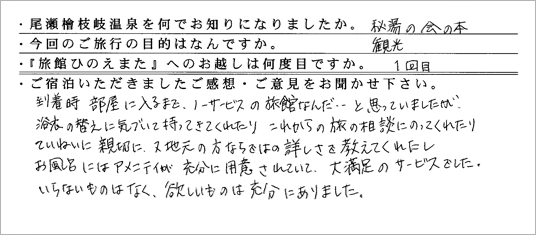 ・尾瀬檜枝岐温泉を何でお知りになりましたか。 秘湯の会の本
・今回のご旅行の目的はなんですか。 観光
・『旅館ひのえまた』へのお越しは何度目ですか。 1回目
・ご宿泊いただきましたご感想・ご意見をお聞かせ下さい。
到着時 部屋に入るまで、ノーサービスの旅館なんだ‥と思っていましたが、
浴衣の替えに気づいて持ってきてくれたり これからの旅の相談にのってくれたり
ていねいに親切に、又地元の方ならではの詳しさを教えてくれたし
お風呂にはアメニティが充分に用意されていて、大満足のサービスでした。
いらないものはなく、欲しいものは充分にありました。